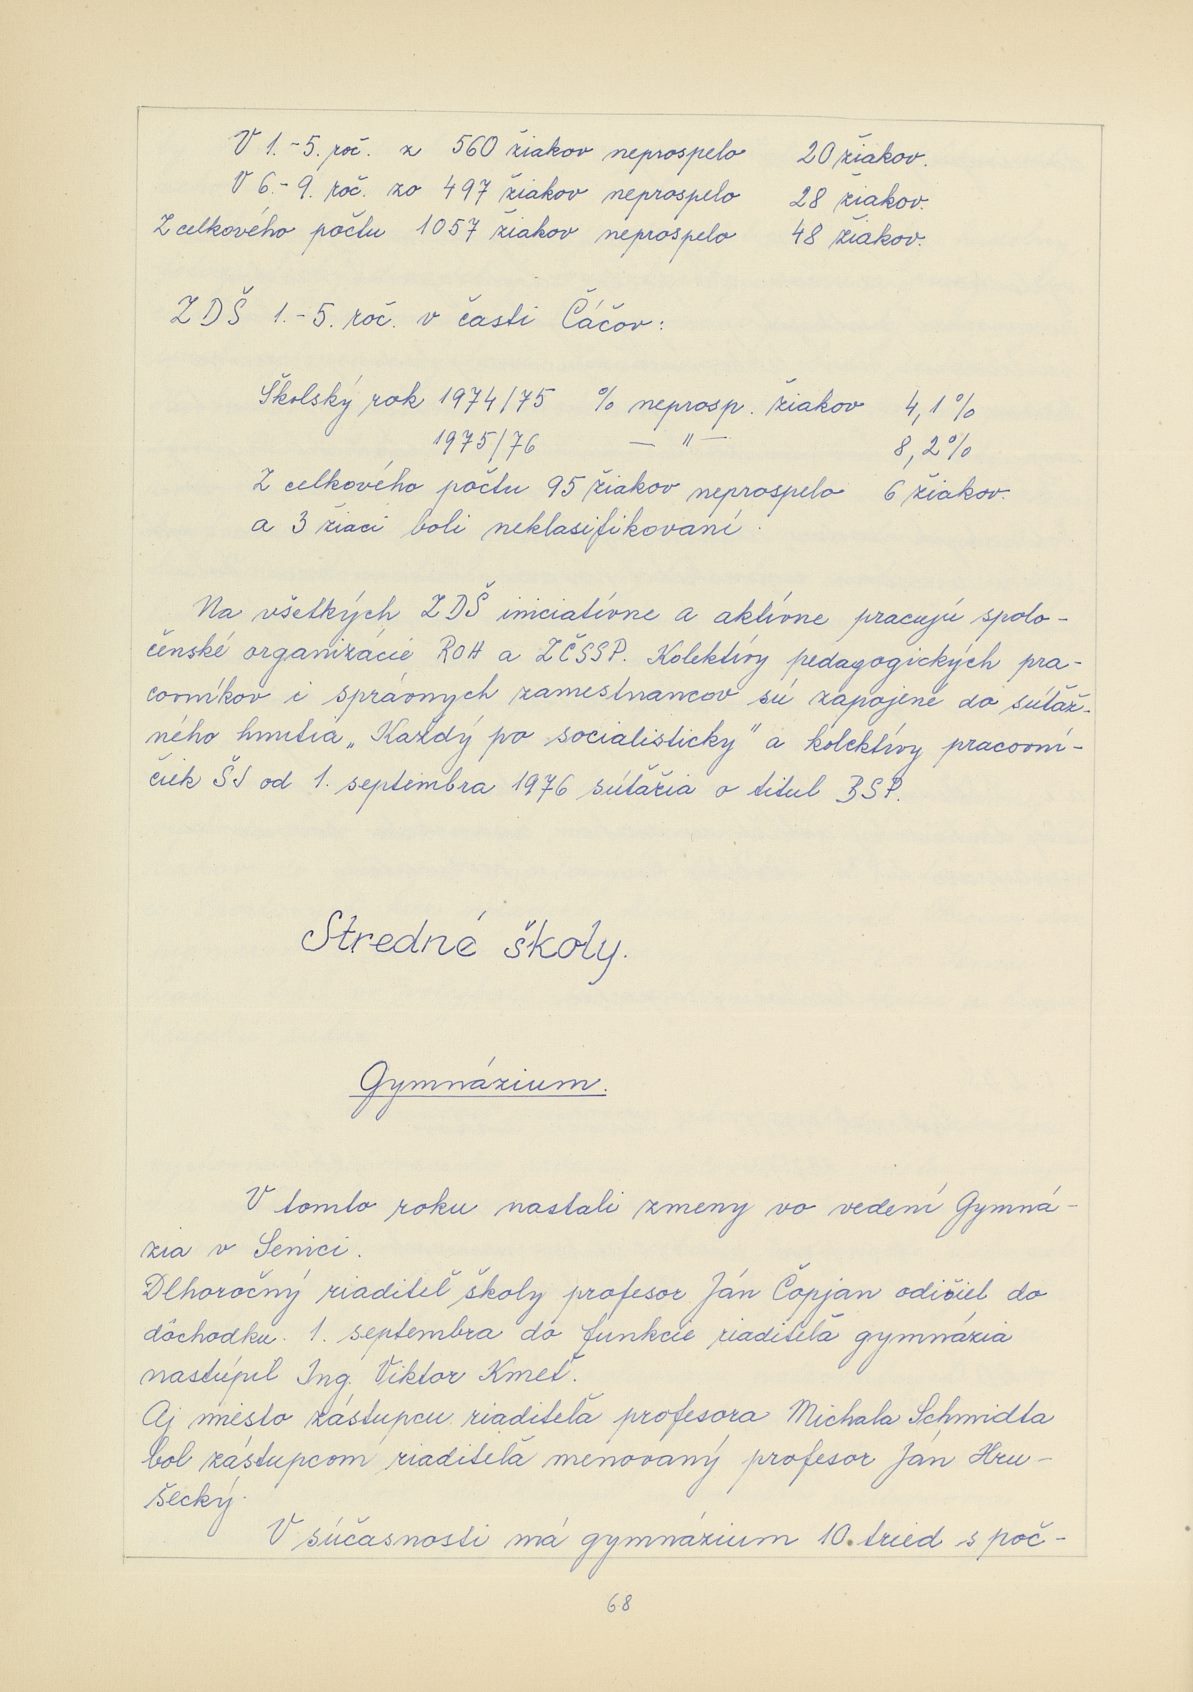 V 1.-5. roč. z 560 žiakov neprospelo 20 žiakov.
V 6.-9. roč. zo 497 žiakov neprospelo 28 žiakov.
Z celkového počtu 1057 žiakov neprospelo 48 žiakov.
ZDŠ 1.-5. roč. v časti Čáčov:
Školský rok 1974/75 % neprosp. žiakov 4,1%
1975/76 — " — 8,2%
Z celkového počtu 95 žiakov neprospelo 6 žiakov.
a 3 žiaci boli neklasifikovaní.
Na všetkých ZDŠ iniciatívne a aktívne pracujú spolo-
čenské organizácie ROH a ZČSSP. Kolektívy pedagogických pra-
covníkov i správnych zamestnancov sú zapojené do súťaž-
ného hnutia „Každý po socialisticky" a kolektívy pracovní-
čiek ŠJ od 1. septembra 1976 súťažia o titul BSP.
Stredné školy.
Gymnázium.
V tomto roku nastali zmeny vo vedení Gymná-
zia v Senici.
Dlhoročný riaditeľ školy profesor Ján Čopjan odišiel do
dôchodku. 1. septembra do funkcie riaditeľa gymnázia
nastúpil Ing. Viktor Kmeť.
Aj miesto zástupcu riaditeľa profesora Michala Schmidta
bol zástupcom riaditeľa menovaný profesor Ján Hru-
šecký.
V súčasnosti má gymnázium 10 tried s poč-
68